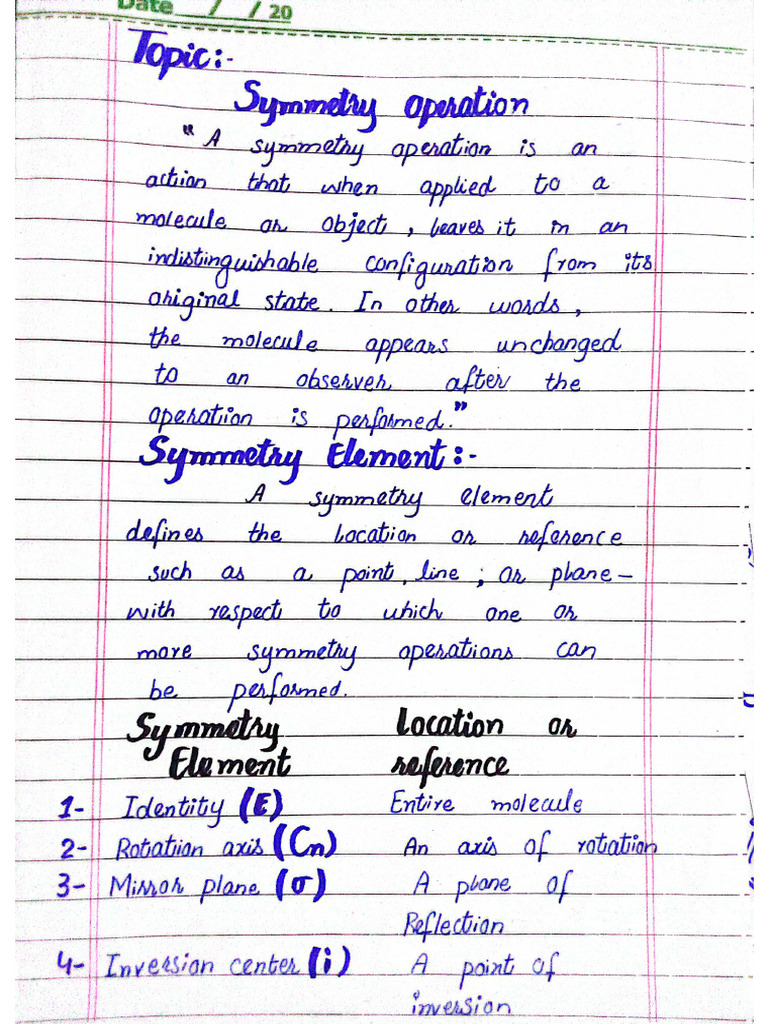 Date / / 20
Topic:-
Symmetry Operation
"A symmetry operation is an
action that when applied to a
molecule or object, leaves it in an
indistinguishable configuration from its
original state. In other words,
the molecule appears unchanged
to an observer after the
operation is performed."
Symmetry Element:-
A symmetry element
defines the location or reference
such as a point, line, or plane-
with respect to which one or
more symmetry operations can
be performed.
Symmetry Location or
Element reference
1- Identity (E) Entire molecule
2- Rotatiion axis (Cn) An axis of rotatiion
3- Mirror plane (σ) A plane of
Reflection
4- Inversion center (i) A point of
inversion